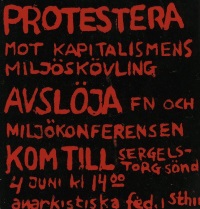 PROTESTERA
MOT KAPITALISMENS
MILJÖSKÖVLING
AVSLÖJA FN OCH
MILJÖKONFERENSEN
KOM TILL SERGELS-
TORG SÖND
4 JUNI kl 14 00
anarkistiska fed. i sthlm